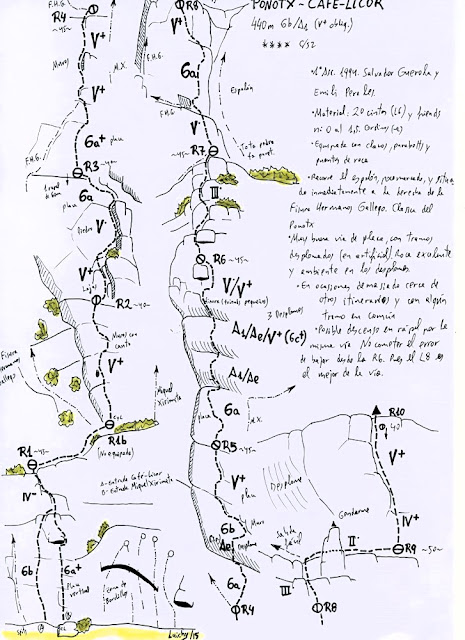 PONOTX - CAFÉ-LICOR
440m 6b/A1 (V+ oblig.)
**** S/S2
• 1ª Asc. 1994. Salvador Guerola y
Emili Perales.
• Material: 20 cintas (LG) y friends
• Equipada con clavos, parabolts y
puentes de roca
• Recorre el espolón, poco marcado, y situado
inmediatamente a la derecha de la
Fisura Hermanos Gallego. Clásica del
Ponotx
• Muy buena vía de placa, con tramos
desplomados (en artificial). Roca excelente
y ambiente en los desplomes.
• En ocasiones demasiado cerca de
otros itinerarios y con algún
tramo en común
• Posible descenso en rápel por la
misma vía. No cometer el error
de bajar desde la R6. Pues el L8 es
el mejor de la vía.
F.H.G.
R4
~45~
V+
Muro
M.X.
V+
6a+
placa
F.H.G.
R3
~40~
6a
placa
V
Diedro
V+
Lajas
R2
~40~
Muro con
canto
V+
Fisura
Hermanos
Gallego
Miquel
Xirimita
R1b
(No equipada)
R1
~45~
IV-
A-entrada Café-Licor
B-entrada Miquel Xirimita
6b
6a+
Placa
vertical
Zona de
Boulder
A
B
Luichy/15
R8
V+
F.H.G.
6a
Espolón
V
F.H.G.
R7
~45~
III
R6
~45~
V/V+
3 Desplomes
A1/Ae/V+(6c+)
A1/Ae
6a
placa
M.X.
R5
~45~
V+
placa
Muro
6b
Ae
desplome
6a
R4
R10
40
V+
Desplome
Gendarme
IV+
Salida
fácil
II
R9
~50~
III
R8